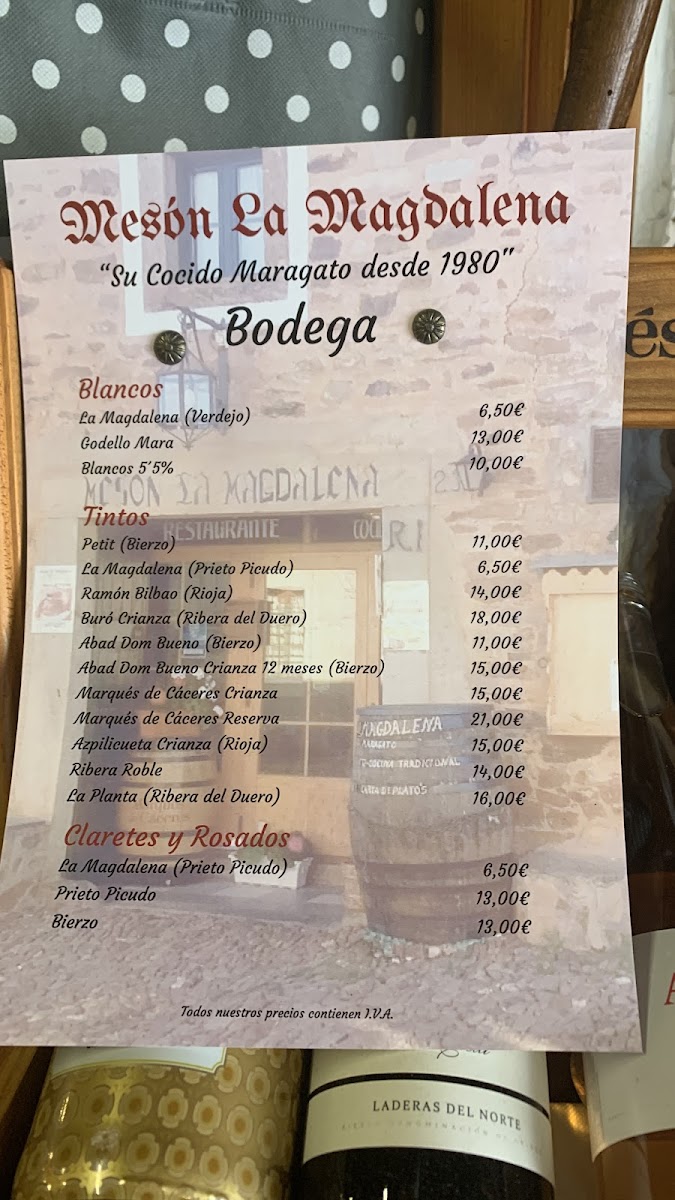 Mesón La Magdalena
“Su Cocido Maragato desde 1980"
Bodega
és
Blancos
La Magdalena (Verdejo) 6,50€
Godello Mara 13,00€
Blancos 5'5% 10,00€
MESON LA MAGDALENA 23
Tintos
RESTAURANTE
Petit (Bierzo) 11,00€
La Magdalena (Prieto Picudo) 6,50€
Ramón Bilbao (Rioja) 14,00€
Buró Crianza (Ribera del Duero) 18,00€
Abad Dom Bueno (Bierzo) 11,00€
Abad Dom Bueno Crianza 12 meses (Bierzo) 15,00€
Marqués de Cáceres Crianza 15,00€
Marqués de Cáceres Reserva 21,00€
Azpilicueta Crianza (Rioja) 15,00€
Ribera Roble 14,00€
La Planta (Ribera del Duero) 16,00€
MAGDALENA
MARAGATO
COCINA TRADICIONAL
CARTA DE PLATOS
Claretes y Rosados
La Magdalena (Prieto Picudo) 6,50€
Prieto Picudo 13,00€
Bierzo 13,00€
Todos nuestros precios contienen I.V.A.
LADERAS DEL NORTE